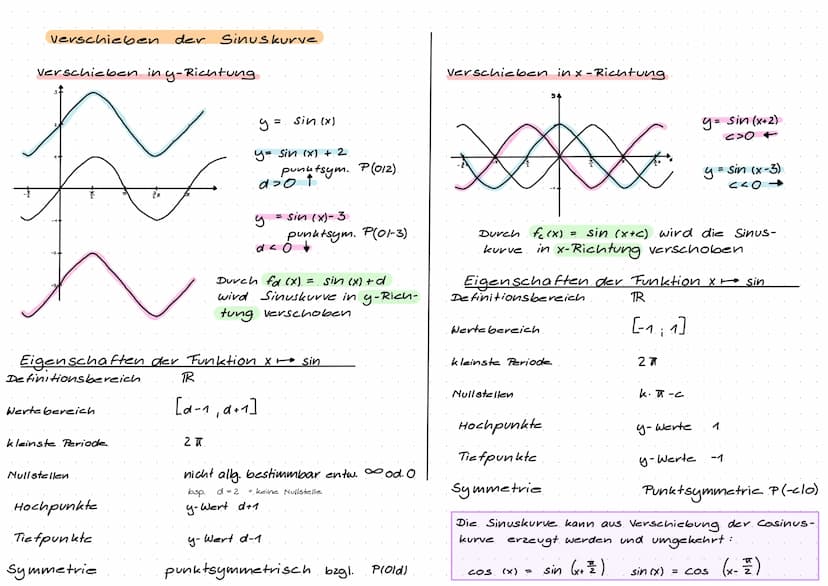 Verschieben der Sinuskurve
Verschieben in y-Richtung
y = sin (x)
y = sin (x) + 2
punktsym. P(0|2)
d>0 ↑
y = sin (x)-3
punktsym. P(0|-3)
d<0 ↓
Durch fd (x) = sin (x) + d
wird Sinuskurve in y-Rich-
tung verschoben
Eigenschaften der Funktion x ↦ sin
Definitionsbereich ℝ
Wertebereich [d-1 , d+1]
kleinste Periode 2π
Nullstellen nicht allg. bestimmbar entw. ∞ od. 0
bsp. d=2 → keine Nullstelle
Hochpunkte y-Wert d+1
Tiefpunkte y-Wert d-1
Symmetrie punktsymmetrisch bzgl. P(0|d)
Verschieben in x-Richtung
y = sin (x+2)
c>0 ←
y = sin (x-3)
c<0 →
Durch fc (x) = sin (x+c) wird die Sinus-
kurve in x-Richtung verschoben
Eigenschaften der Funktion x ↦ sin
Definitionsbereich ℝ
Wertebereich [-1 ; 1]
kleinste Periode 2π
Nullstellen k·π-c
Hochpunkte y-Werte 1
Tiefpunkte y-Werte -1
Symmetrie Punktsymmetrie P(-c|0)
Die Sinuskurve kann aus Verschiebung der Cosinus-
kurve erzeugt werden und umgekehrt:
cos (x) = sin (x+ π/2) sin(x) = cos (x- π/2)